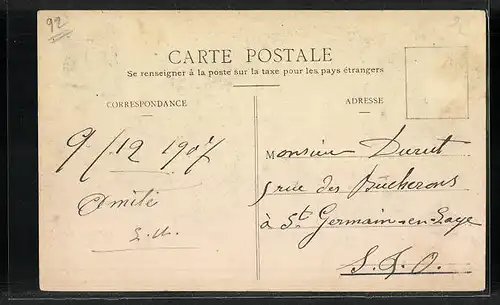 92
CARTE POSTALE
Se renseigner à la poste sur la taxe pour les pays étrangers
CORRESPONDANCE
ADRESSE
9/12 1907
Amitié
Monsieur Durut
5 rue des Bucherons
à St Germain-en-Laye
S. & O.